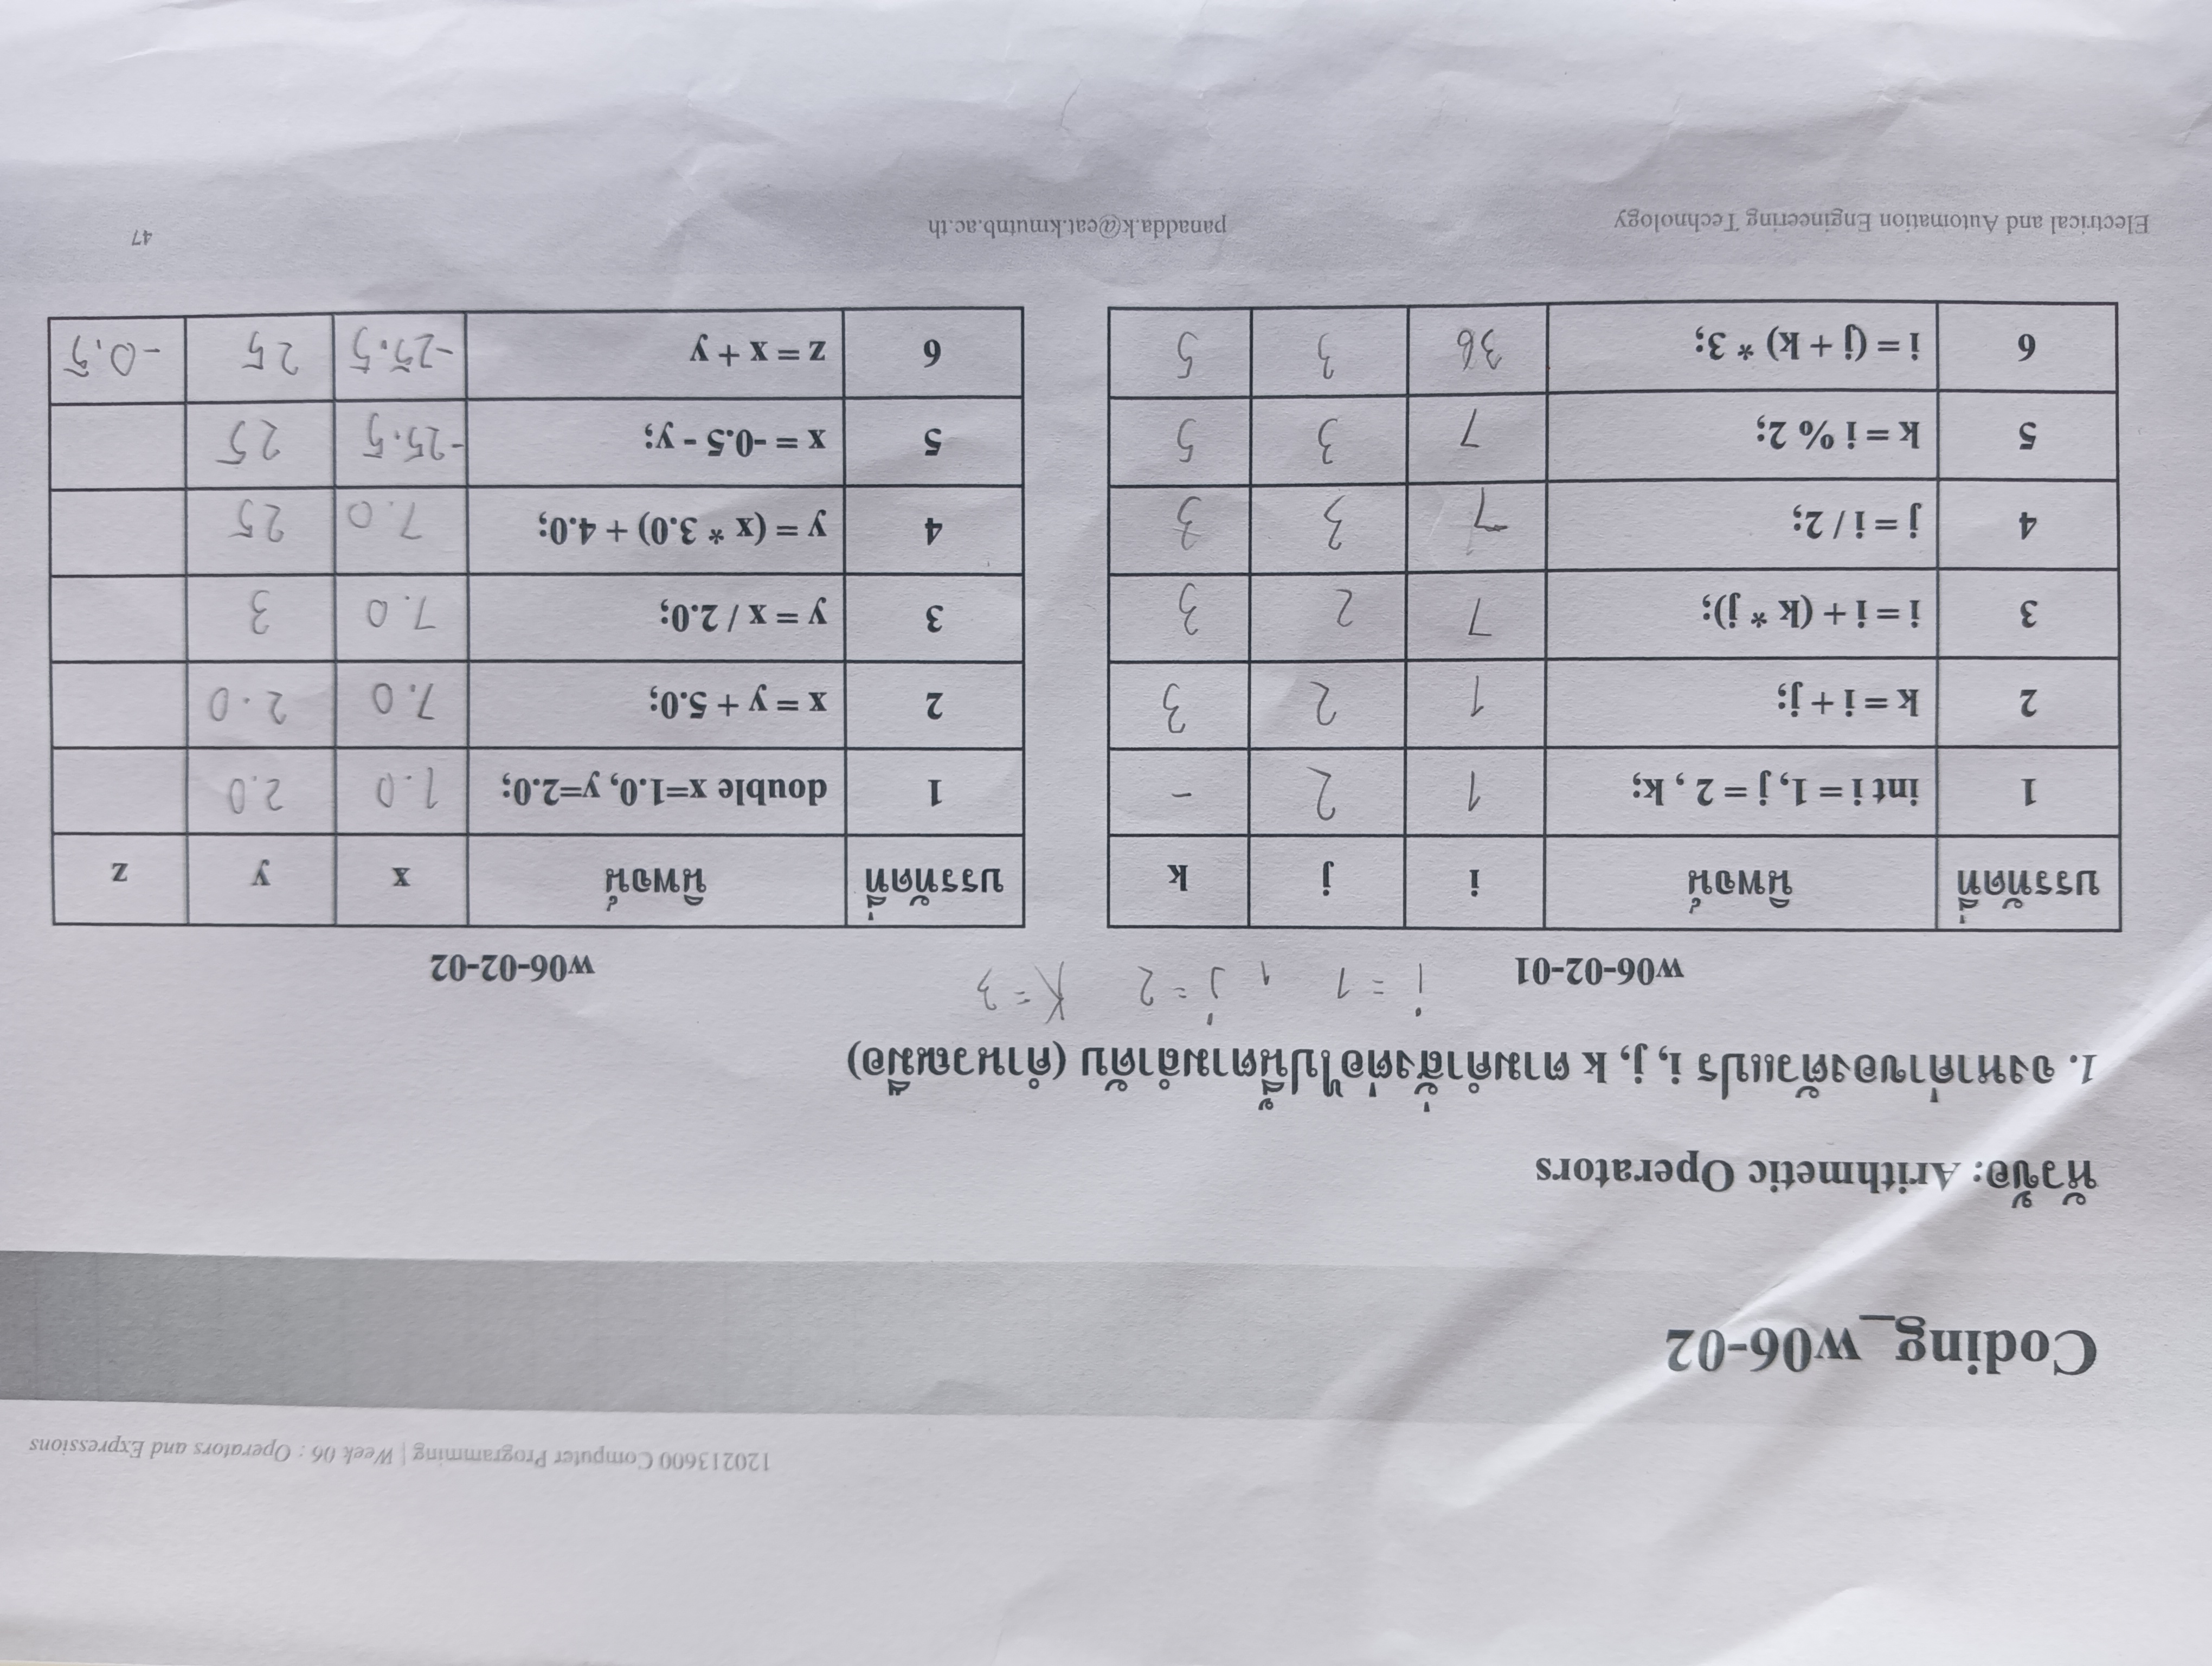 120213600 Computer Programming | Week 06 : Operators and Expressions
Coding_w06-02
หัวข้อ: Arithmetic Operators
1. จงหาค่าของตัวแปร i, j, k ตามคำสั่งต่อไปนี้ตามลำดับ (คำนวณมือ)
i = 1 , j = 2 K = 3
w06-02-01
บรรทัดที่ นิพจน์ i j k
1 int i = 1, j = 2 , k; 1 2 -
2 k = i + j; 1 2 3
3 i = i + (k * j); 7 2 3
4 j = i / 2; 7 3 3
5 k = i % 2; 7 3 5
6 i = (j + k) * 3; 36 3 5
w06-02-02
บรรทัดที่ นิพจน์ x y z
1 double x=1.0, y=2.0; 1.0 2.0
2 x = y + 5.0; 7.0 2.0
3 y = x / 2.0; 7.0 3
4 y = (x * 3.0) + 4.0; 7.0 25
5 x = -0.5 - y; -25.5 25
6 z = x + y -25.5 25 -0.5
Electrical and Automation Engineering Technology panadda.k@eat.kmutnb.ac.th 47